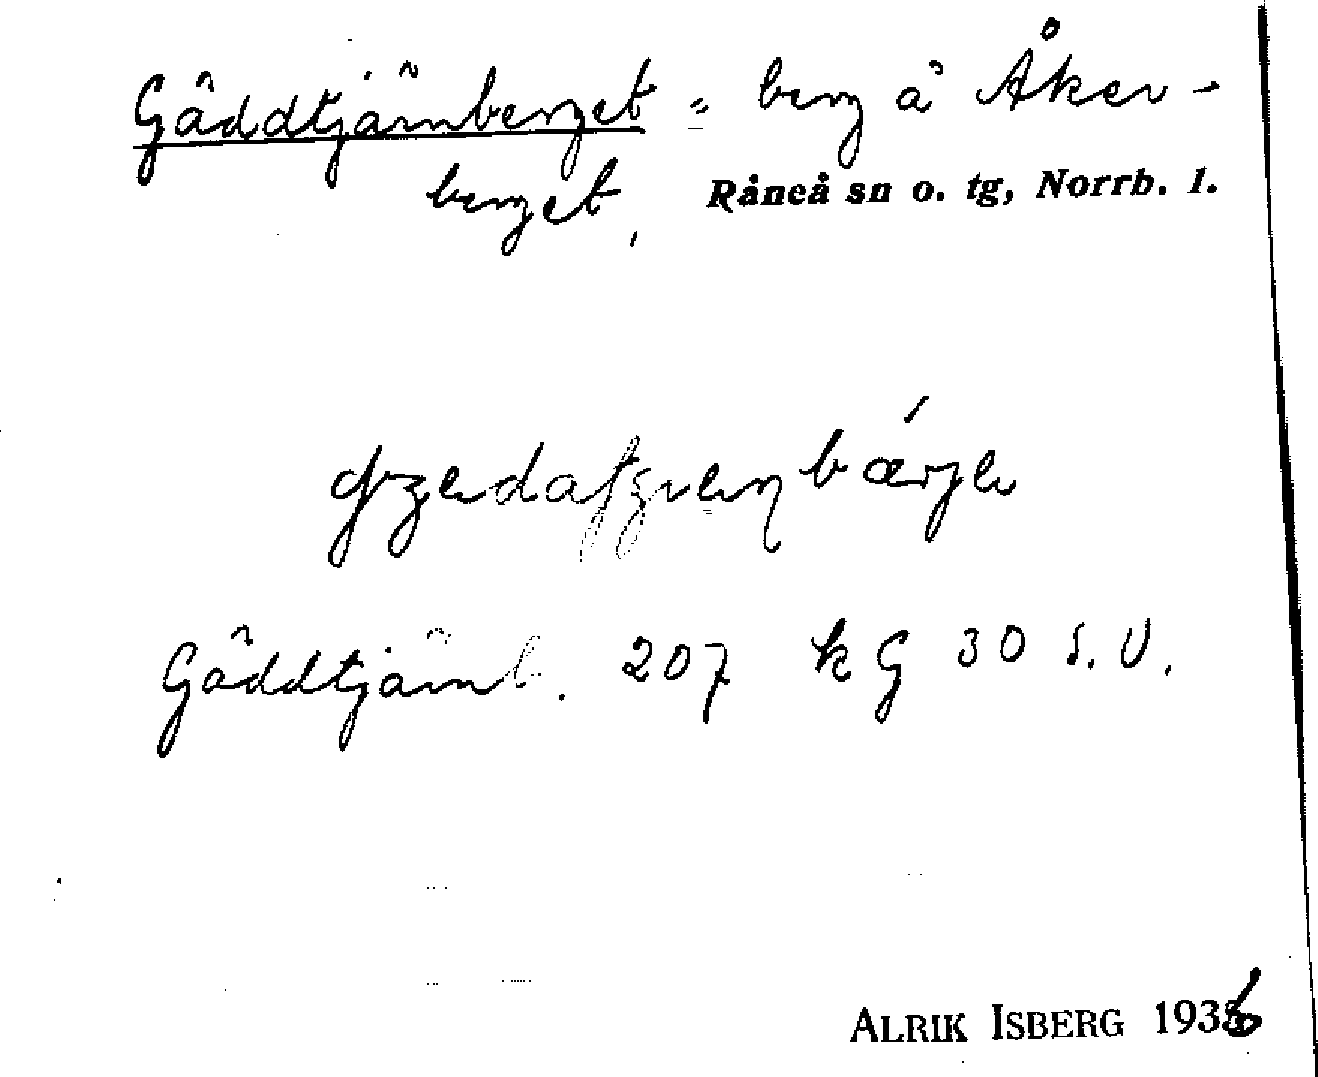 Gäddtjärnberget = berg å Åker-
berget,
Råneå sn o. tg, Norrb. l.
Gäddtjärnb. 207 kG 30 S.V.
ALRIK ISBERG 1936